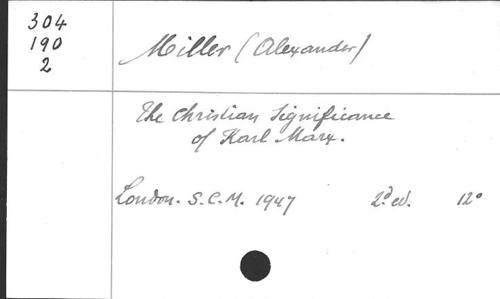 304
190
2
Miller (Alexander)
The Christian Significance
of Karl Marx.
London. S.C.M. 1947 2d ed. 12°